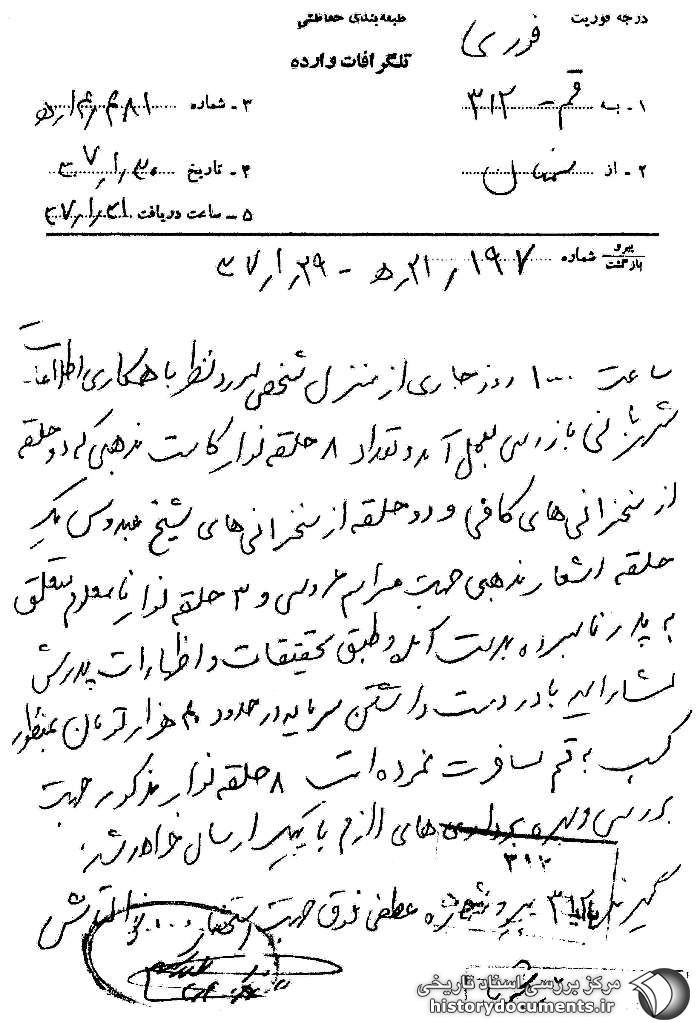 درجه فوریت فوری طبقه‌بندی حفاظتی
تلگرافات وارده
۱ـ ب قم ـ ۳۱۲ ۳ـ شماره ۵٫۱۴٫۴۸۱
۲ـ از سمنان ۴ـ تاریخ ۳۷٫۱٫۳۰
۵ـ ساعت دریافت ۳۷٫۱٫۳۱
پیرو بازگشت شماره ۵٫۲۱٫۱۹۷ ـ ۳۷٫۱٫۲۹
ساعت ۱۰۰۰ روز جاری از منزل شخص مورد نظر با همکاری اطلاعات
شهربانی بازرسی بعمل آمد و تعداد ۸ حلقه نوار کاست مذهبی که دو حلقه
از سخنرانی‌های کافی و دو حلقه از سخنرانی‌های شیخ عبدوس یک
حلقه اشعار مذهبی جهت مراسم عروسی و ۳ حلقه نوار نامعلوم متعلق
به پدر نامبرده بدست آمده و طبق تحقیقات و اظهارات پدرش
مشارالیه با در دست داشتن سرمایه در حدود ۴۰ هزار تومان بمنظور
کسب به قم مسافرت نموده است ۸ حلقه نوار مذکور جهت
بررسی و بهره برداری‌های لازم با پیک ارسال خواهد شد
۳۱۲
گیرنده ۳۱۲ پیرو شماره عطفی فوق جهت استحضار
مرکز بررسی اسناد تاریخی
historydocuments.ir